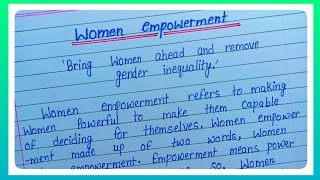 Women empowerment
'Bring Women ahead and remove
gender inequality.'
Women empowerment refers to making
Women Powerful to make them capable
of deciding for themselves. Women empower
-ment made up of two words, Women
empowerment. Empowerment means power
so, Women